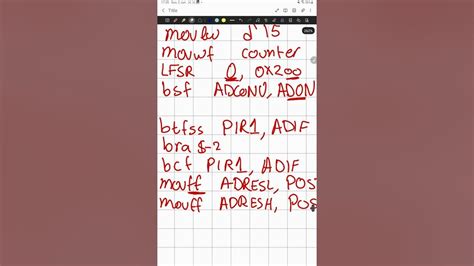 Title
movlw d'15
movwf counter
LFSR 0, 0x200
bsf ADCON0, ADON
btfss PIR1, ADIF
bra $-2
bcf PIR1, ADIF
movff ADRESL, POS
movff ADRESH, POS